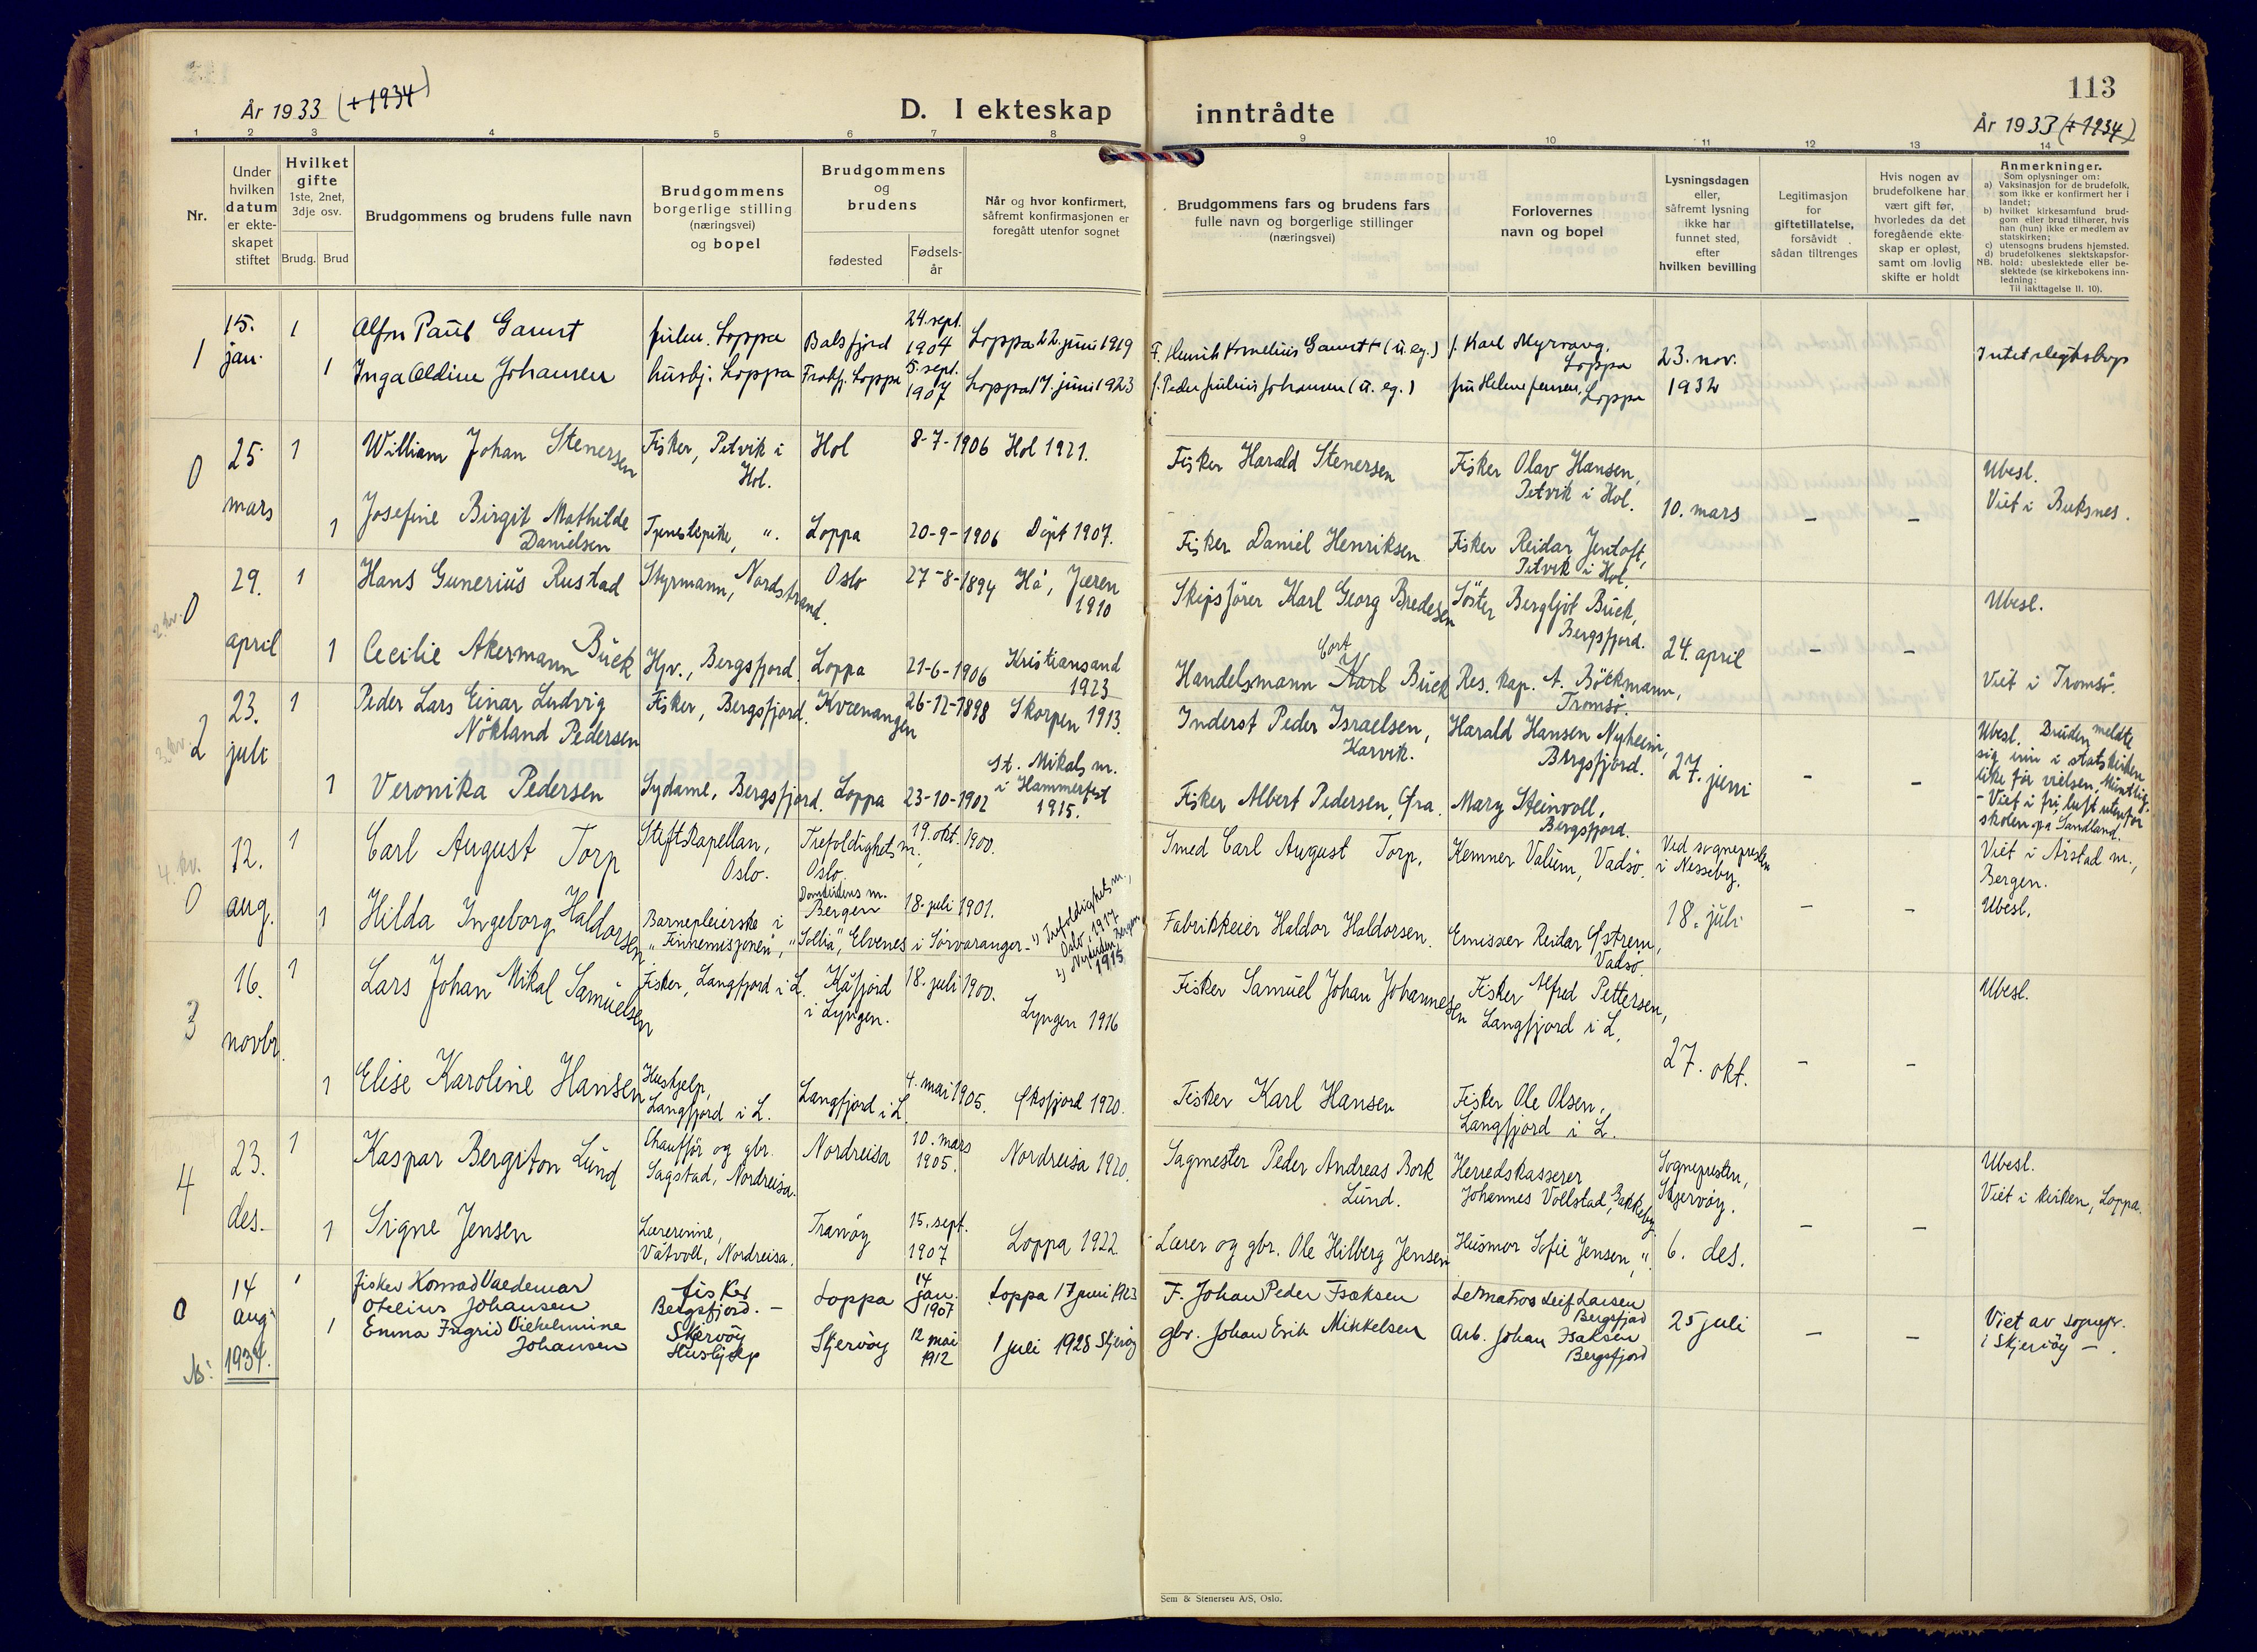 113
År 1933 (+1934)
D. I ekteskap inntrådte
År 1933 (+1934)
1 2 3 4 5 6 7 8 9 10 11 12 13 14
Nr.
Under
hvilken
datum
er ekte-
skapet
stiftet
Hvilket
gifte
1ste, 2net,
3dje osv.
Brudg. Brud
Brudgommens og brudens fulle navn
Brudgommens
borgerlige stilling
(næringsvei)
og bopel
Brudgommens
og
brudens
fødested
Fødsels-
år
Når og hvor konfirmert,
såfremt konfirmasjonen er
foregått utenfor sognet
Brudgommens fars og brudens fars
fulle navn og borgerlige stillinger
(næringsvei)
Forlovernes
navn og bopel
Lysningsdagen
eller,
såfremt lysning
ikke har
funnet sted,
efter
hvilken bevilling
Legitimasjon
for
giftetillatelse,
forsåvidt
sådan tiltrenges
Hvis nogen av
brudefolkene har
vært gift før,
hvorledes da det
foregående ekte-
skap er opløst,
samt om lovlig
skifte er holdt
Anmerkninger.
Som oplysninger om:
a) Vaksinasjon for de brudefolk,
som ikke er konfirmert her i
landet;
b) hvilket kirkesamfund brud-
gom eller brud tilhører, hvis
han (hun) ikke er medlem av
statskirken;
c) utensogns brudens hjemsted.
d) brudefolkenes slektskapsfor-
NB. hold: ubeslektede eller be-
slektede (se kirkebokens inn-
ledning:
Til iakttagelse II. 10).
1
15.
jan.
1
Alfon Paul Gamst
Loppa
Balsfjord
24. sept.
1904
Loppa 22. juni 1919
F. Henrik Kornelius Gamst + (u. eg.)
f. Karl Myrvang,
Loppa
23. nov.
1932
1
Inga Aldine Johansen
husbj. Loppa
Loppa
5. sept.
1907
Loppa 17. juni 1923
f. Peder Julius Johansen (u. eg.)
fru Helene Jensen, Loppa
0
25
mars
1
William Johan Stenersen
Fisker, Petvik i
Hol.
Hol
8-7-1906
Hol 1921.
Fisker Harald Stenersen
Fisker Olav Hansen,
Petvik i Hol.
10. mars
-
-
Ubesl.
Viet i Buksnes.
1
Josefine Birgit Mathilde
Danielsen
Tjenestepike, ".
Loppa
20-9-1906
Døpt 1907.
Fisker Daniel Henriksen
Fisker Reidar Jentoft,
Petvik i Hol.
2. kv.
0
29.
april
1
Hans Gunerius Rustad
Styrmann, Nordstrand.
Oslo
27-8-1894
Hå, Jæren
1910
Skipsfører Karl Georg Bredesen
Søster Bergljot Buck,
Bergsfjord.
24. april
-
-
Ubesl.
1
Cecilie Akermann Buck
Hjv., Bergsfjord.
Loppa
21-6-1906
Kristiansand
1923
Cort
Handelsmann Karl Buck
Res. kap. A. Bøckmann,
Tromsø.
Viet i Tromsø.
3. kv.
2
23.
juli
1
Peder Lars Einar Ludvig
Nøkland Pedersen
Fisker, Bergsfjord.
Kvænangen
26-12-1898
Skorpen 1913.
Inderst Peder Israelsen,
Karvik.
Harald Hansen Nyheim,
Bergsfjord.
27. juni
-
-
Ubesl. Bruden meldte
sig inn i statskirken
like før vielsen. Muntlig.
- Viet i fri luft utenfor
skolen på Sandland.
1
Veronika Pedersen
Sydame, Bergsfjord.
Loppa
23-10-1902
St. Mikals m.
i Hammerfest
1915.
Fisker Albert Pedersen, Øra.
Mary Steinvoll,
Bergsfjord.
4. kv.
0
12.
aug.
1
Carl August Torp
Stiftskapellan,
Oslo.
Trefoldighets m.,
Oslo.
19. okt. 1900.
1) Trefoldighets m.,
Oslo, 1917
Smed Carl August Torp.
Kemner Valum, Vadsø.
Ved sognepresten
i Nesseby.
18. juli
-
-
Viet i Årstad m.,
Bergen.
Ubesl.
1
Hilda Ingeborg Haldorsen
Barnepleierske i
"Finnemisjonen", "Sollia", Elvenes i Sørvaranger.
Domkirkens m.
Bergen
18. juli 1901.
2) Nykirken, Bergen,
1915
Fabrikkeier Haldor Haldorsen.
Emissær Reidar Østrem,
Vadsø.
3
16.
novbr.
1
Lars Johan Mikal Samuelsen
Fisker, Langfjord i L.
Kåfjord
i Lyngen.
18. juli 1900.
Lyngen 1916
Fisker Samuel Johan Johannesen
Fisker Alfred Pettersen,
Langfjord i L.
27. okt.
-
-
Ubesl.
1
Elise Karoline Hansen
Hushjelp,
Langfjord i L.
Langfjord i L.
4. mai 1905.
Øksfjord 1920.
Fisker Karl Hansen
Fisker Ole Olsen,
Langfjord i L.
4
23.
des.
1
Kaspar Bergiton Lund
Chauffør og gbr.
Sagstad, Nordreisa.
Nordreisa
10. mars
1905.
Nordreisa 1920.
Sagmester Peder Andreas Bork
Lund.
Herredskasserer
Johannes Vollstad, Bakkeby.
Sognepresten,
Skjervøy.
6. des.
-
-
Ubesl.
Viet i kirken, Loppa.
1
Signe Jensen
Lærerinne,
Våtvoll, Nordreisa.
Tranøy
15. sept.
1907
Loppa 1922.
Lærer og gbr. Ole Hilberg Jensen
Husmor Sofie Jensen, ".
0
14
aug.
1934.
1
fisker Konrad Valdemar
Otelius Johansen
fisker
Bergsfjord. -
Loppa
14
jan.
1907
Loppa 17 juni 1923
F. Johan Peder Isaksen
Leif Larsen
Bergsfjord
25 juli
-
-
Viet av sognepr.
i Skjervøy -.
1
Emma Ingrid Vilhelmine
Johansen
Skjervøy
Hushjelp
Skjervøy
12 mai
1912
1 juli 1928 Skjervøy
gbr. Johan Erik Mikkelsen
Arb. Johan Isaksen
Bergsfjord
Sem & Stenersen A/S, Oslo.